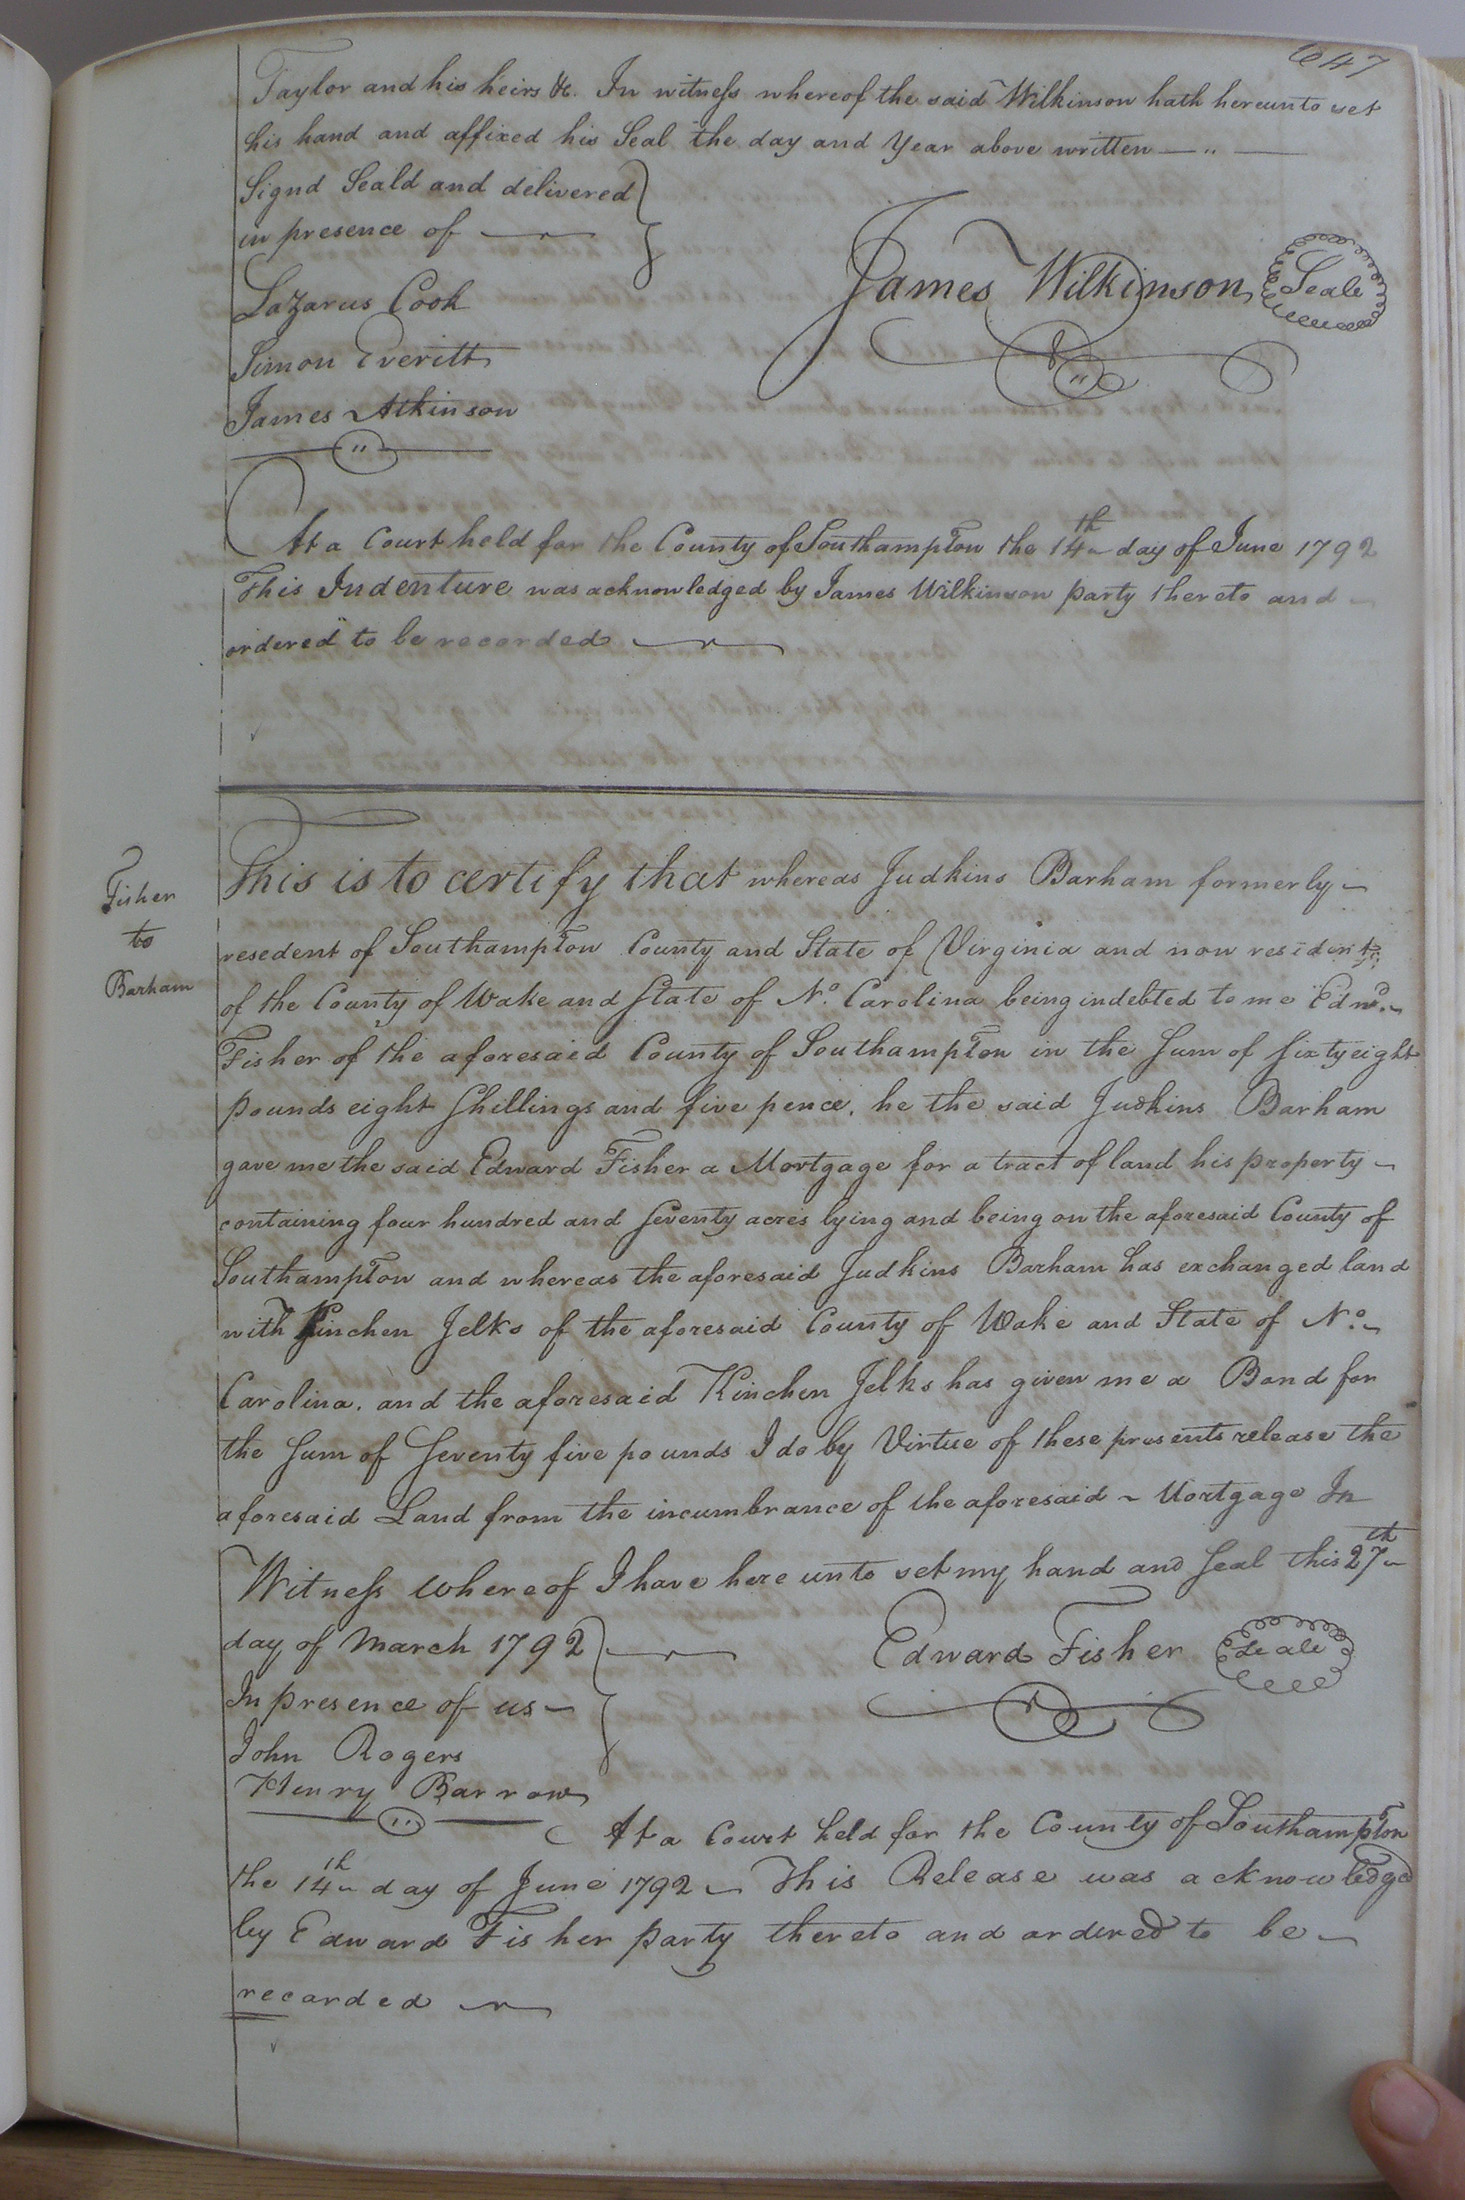 647
Taylor and his heirs &c. In witness whereof the said Wilkinson hath hereunto set
his hand and affixed his Seal the day and Year above written
Signd Seald and delivered
in presence of
James Wilkinson Seale
Lazarus Cook
Simon Everitt
James Atkinson
At a Court held for the County of Southampton the 14th day of June 1792
This Indenture was acknowledged by James Wilkinson party thereto and
ordered to be recorded
Fisher
to
Barham
This is to certify that whereas Judkins Barham formerly
resedent of Southampton County and State of Virginia and now resident
of the County of Wake and State of No. Carolina being indebted to me Edwd.
Fisher of the aforesaid County of Southampton in the Sum of Sixty eight
pounds eight Shillings and five pence, he the said Judkins Barham
gave me the said Edward Fisher a Mortgage for a tract of land his property
containing four hundred and Seventy acres lying and being on the aforesaid County of
Southampton and whereas the aforesaid Judkins Barham has exchanged land
with Kinchen Jelks of the aforesaid County of Wake and State of No.
Carolina. and the aforesaid Kinchen Jelks has given me a Bond for
the Sum of Seventy five pounds I do by Virtue of these presents release the
aforesaid Land from the incumbrance of the aforesaid Mortgage In
Witness whereof I have here unto set my hand and Seal this 27th
day of March 1792
Edward Fisher Seale
In presence of us
John Rogers
Henry Barrow
At a Court held for the County of Southampton
the 14th day of June 1792 This Release was acknowledged
by Edward Fisher party thereto and ordered to be
recarded